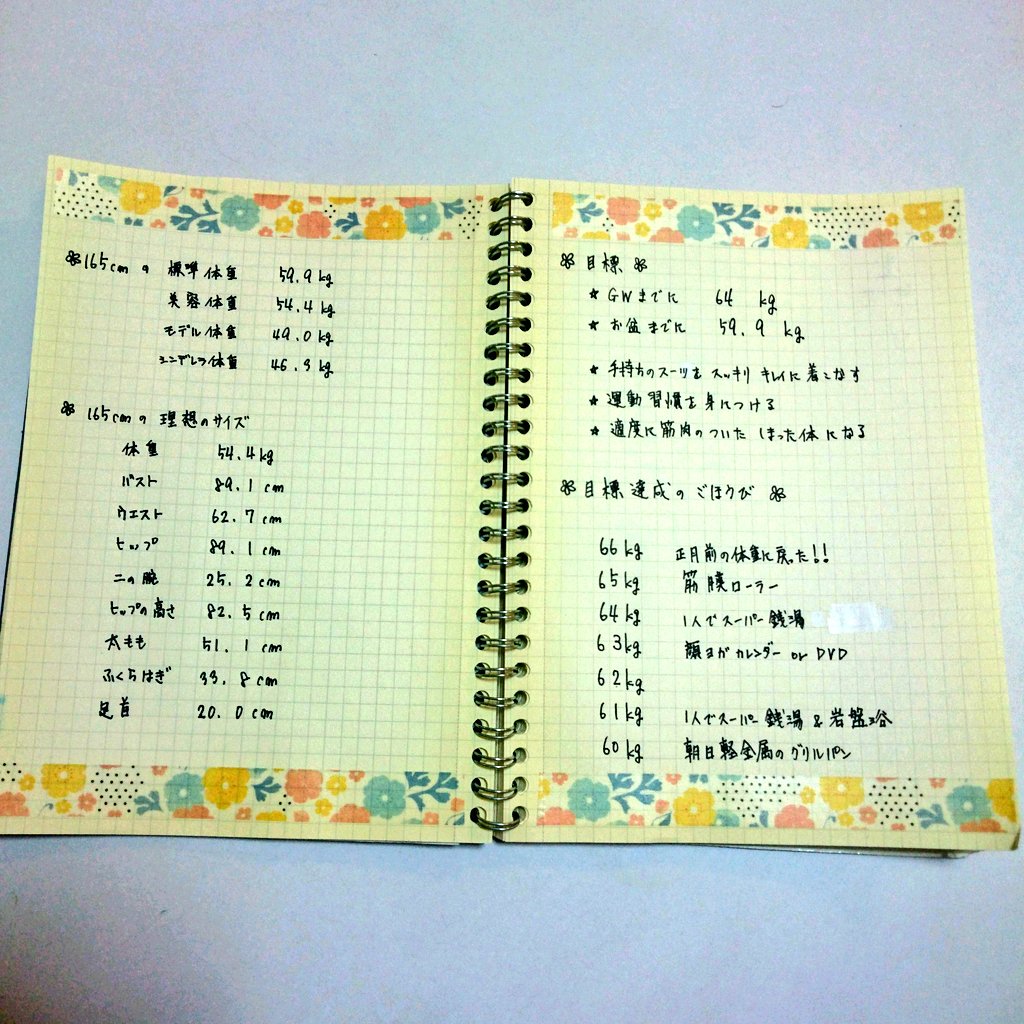 165cmの 標準体重 59.9kg
美容体重 54.4kg
モデル体重 49.0kg
シンデレラ体重 46.3kg
165cmの 理想のサイズ
体重 54.4kg
バスト 89.1cm
ウエスト 62.7cm
ヒップ 89.1cm
二の腕 25.2cm
ヒップの高さ 82.5cm
太もも 51.1cm
ふくらはぎ 33.8cm
足首 20.0cm
目標
★ GWまでに 64 kg
★ お盆までに 59.9 kg
★ 手持ちのスーツを スッキリ キレイに 着こなす
★ 運動習慣を 身につける
★ 適度に筋肉のついた しまった体になる
目標達成のごほうび
66kg 正月前の体重に戻った!!
65kg 筋膜ローラー
64kg 1人でスーパー銭湯
63kg 顔ヨガカレンダー or DVD
62kg
61kg 1人でスーパー銭湯 & 岩盤浴
60kg 朝日軽金属のグリルパン